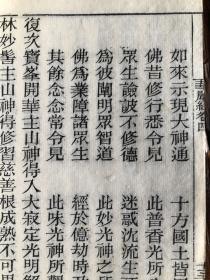 華嚴經卷四
如來示現大神通　十方國土皆
佛昔修行悉令見　此普香光所
眾生諂詖不修德　迷惑沈流生
為彼闡明眾智道　此妙光神之
佛為業障諸眾生　經於億劫時
其餘念念常令見　此味光神所
復次寶峯開華主山神得入大寂定光明
林妙髻主山神得修習慈善根成熟不可